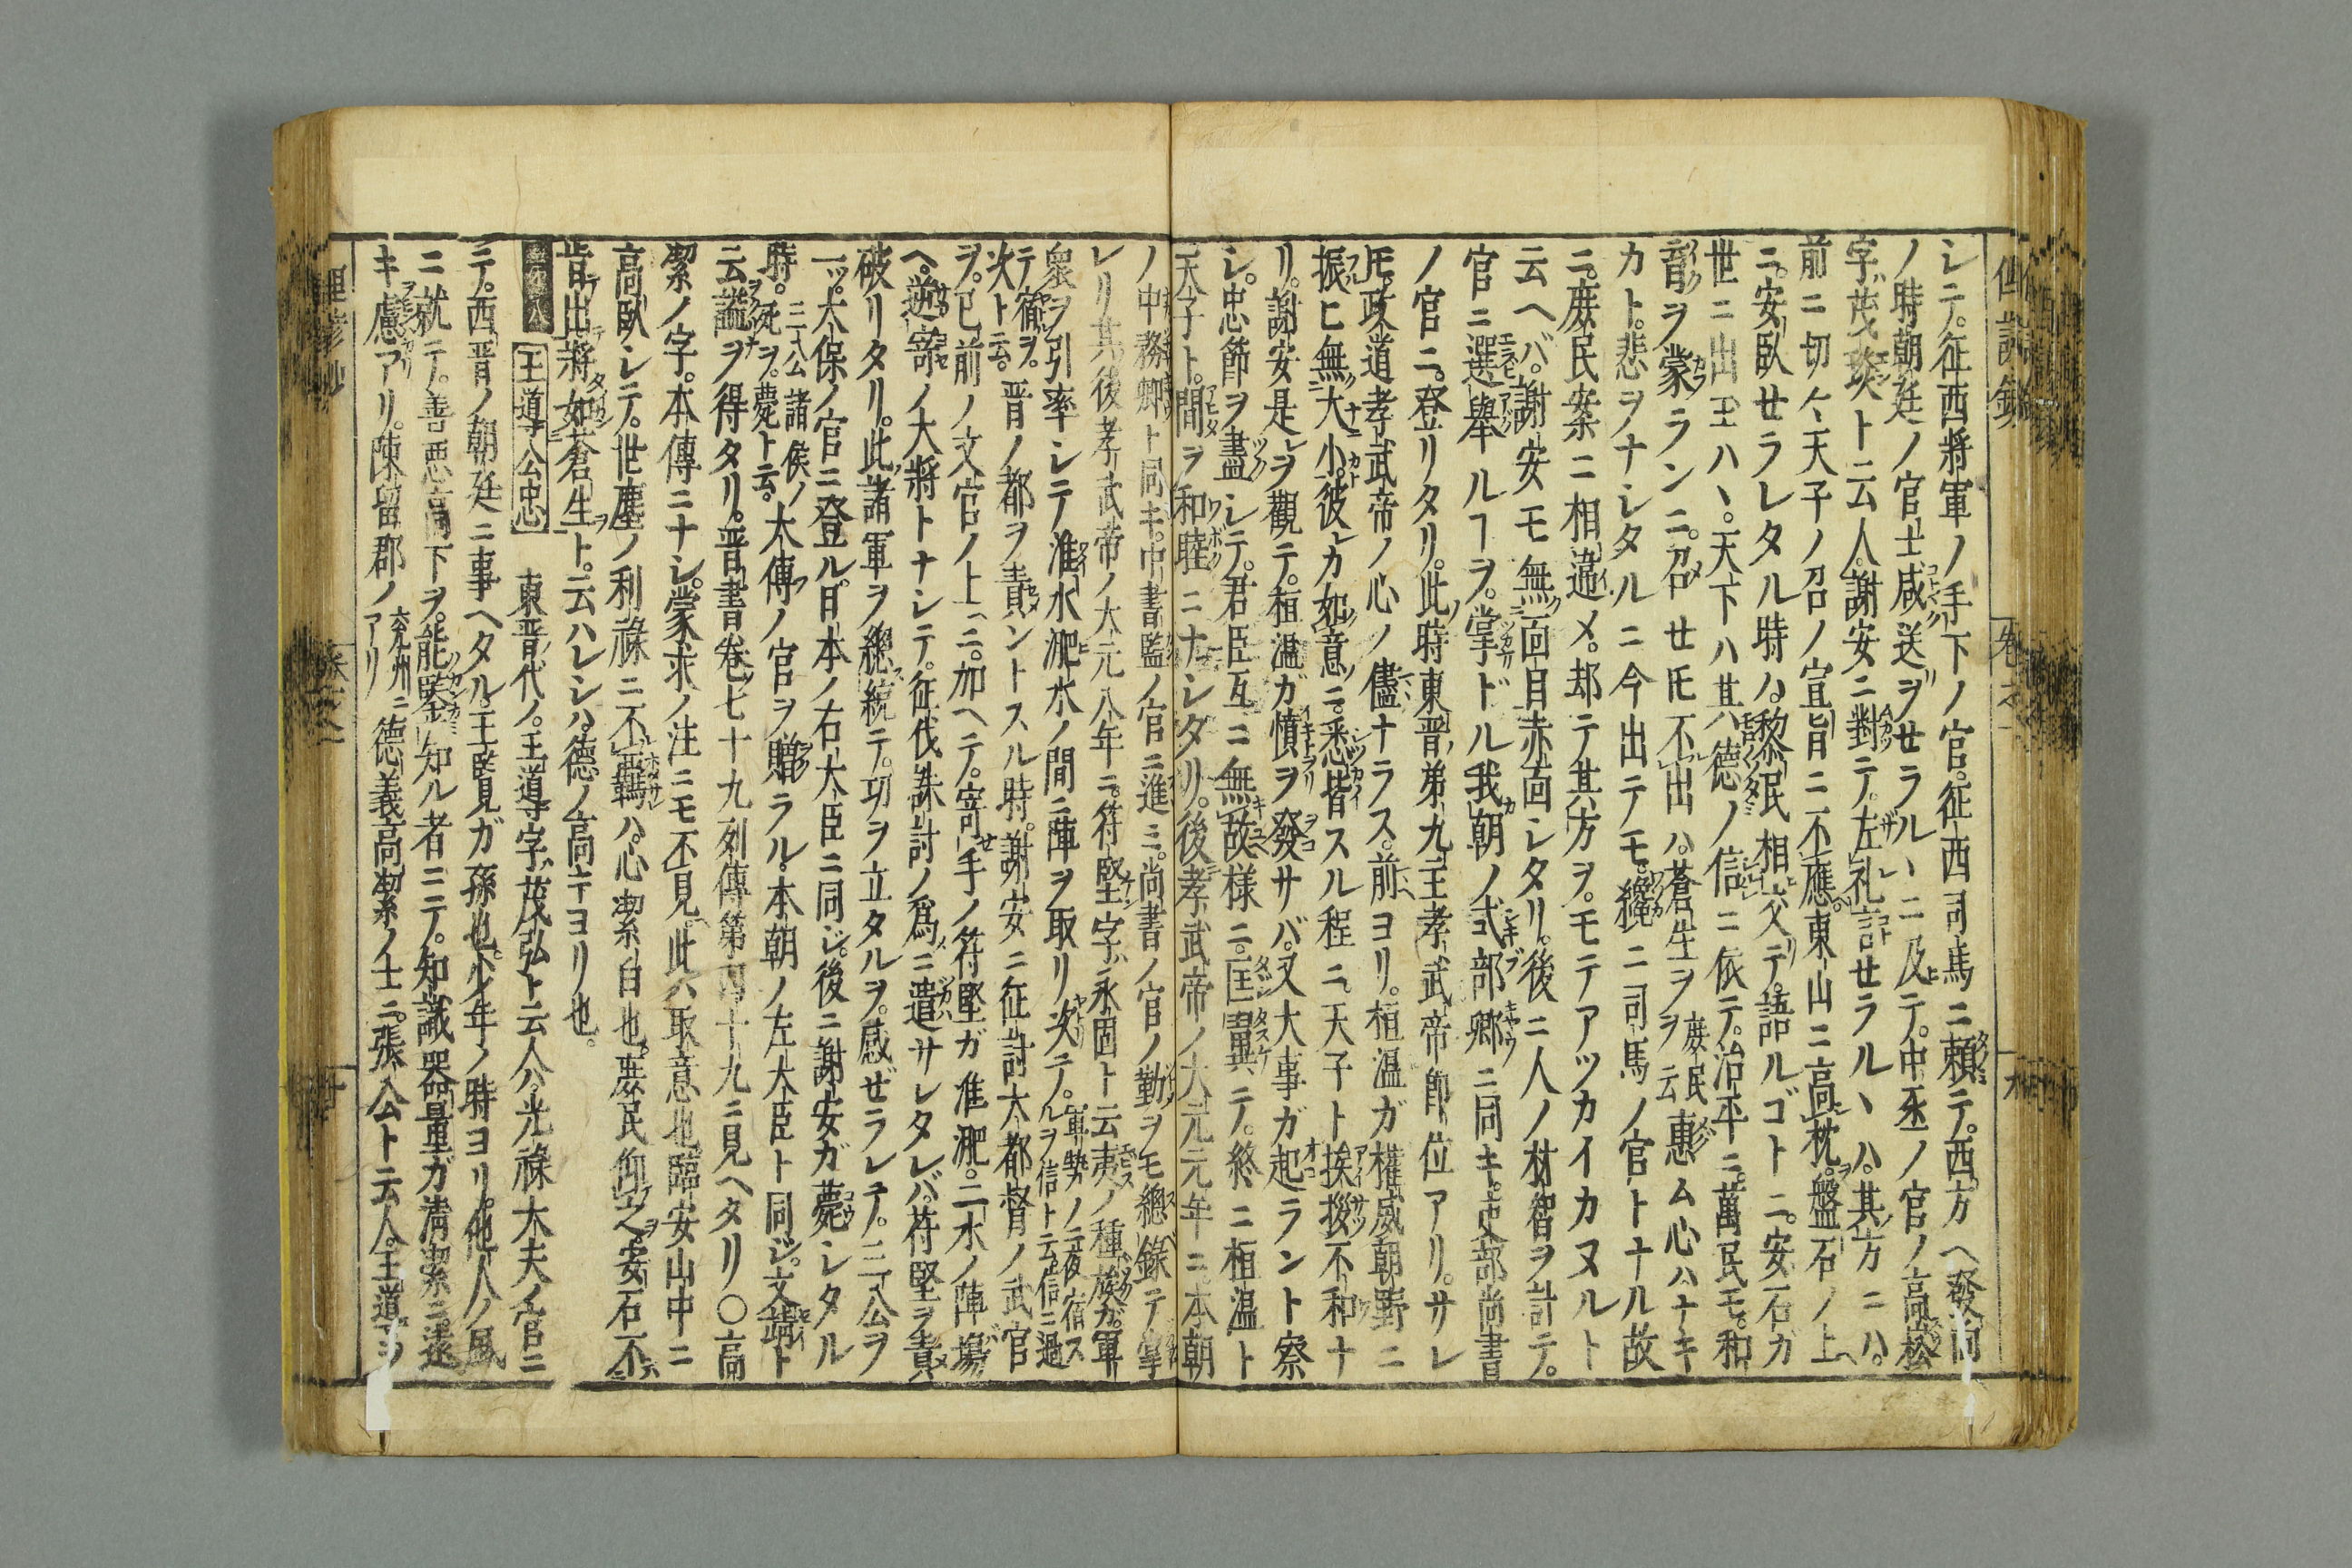 シテ。征西將軍ノ手下ノ官。征西司馬ニ頼テ。西方ヘ發向
ノ時朝廷ノ官士咸送ヲせラルヽニ及テ。中丞ノ官ノ高崧
字茂琰ト云人。謝安ニ對テ。左礼言せラルヽハ。其方ニハ。
前ニ切々天子ノ召ノ宣旨ニ不應。東山ニ高枕。盤石ノ上
ニ。安臥せラレタル時ハ。黎民相交テ。語ルゴトニ。安石ガ
世ニ出玉ハヽ。天下ハ其徳ノ信ニ依テ。治平ニ。萬民モ。和
音ヲ蒙ランニ。召せ𪜈不出ハ。蒼生ヲ庶民ヲ云惠ム心ハナキ
カト。悲ヲナシタルニ今出テモ。纔ニ司馬ノ官トナル故
ニ。庶民案ニ相違メ。却テ其方ヲ。モテアツカイカヌルト
云ヘバ。謝安モ無面目赤面シタリ。後ニ人ノ材智ヲ計テ。
官ニ選舉ルヿヲ。掌ドル我朝ノ式部卿ニ同キ。吏部尚書
ノ官ニ。登リタリ。此時東晋ノ第九主孝武帝即位アリ。サレ
𪜈。政道孝武帝ノ心ノ儘ナラス。前ヨリ。桓温ガ權威朝野ニ
振ヒ無大小。彼カ如意ニ。悉皆スル程ニ。天子ト挨拶不和ナ
リ。謝安是ヲ觀テ。桓温ガ憤ヲ發サバ。又大事ガ起ラント察
シ。忠節ヲ盡シテ。君臣互ニ無故樣ニ。匡翼テ。終ニ桓温ト
天子ト。間ヲ和睦ニナシタリ。後孝武帝ノ大元元年ニ。本朝
ノ中務卿ト同キ。中書監ノ官ニ進ミ。尚書ノ官ノ勤ヲモ總錄テ掌
レリ其後孝武帝ノ大元八年ニ。符堅字ハ永固ト云夷ノ種族ガ。軍
衆ヲ引率シテ淮水淝水ノ間ニ陣ヲ取リ次テ。軍勢ノ一夜宿スルヲ信ト云。信ニ過
テ徹ヲ。次ト云。晋ノ都ヲ責ントスル時。謝安ニ征討大都督ノ武官
ヲ。已前ノ文官ノ上ニ。加ヘテ。寄せ手ノ符堅ガ淮淝。二水ノ陣場
ヘ。逆寄ノ大將トナシテ。征伐誅討ノ爲ニ遣サレタレバ。符堅ヲ責
破リタリ。此諸軍ヲ總統テ。功ヲ立タルヲ。感ぜラレテ。三公ヲ
一ッ。大保ノ官ニ登ル。日本ノ右大臣ニ同ジ。後ニ謝安ガ薨シタル
時。三公諸侯ノ死ヲ。薨ト云。太傅ノ官ヲ贈ラル。本朝ノ左大臣ト同ジ。文靖ト
云謚ヲ得タリ。晋書卷七十九列傳第四十九ニ見ヘタリ〇高
潔ノ字。本傳ニナシ。蒙求ノ注ニモ不見。此ハ取意也。臨安山中ニ
高臥シテ。世塵ノ利祿ニ不羈ハ。心潔白也。庶民仰之。安石不
肯出將如蒼生ト。云ハレシハ。徳ノ高キヨリ也。
王導公忠 東晋代ノ。王導字茂弘ト云人ハ。光祿大夫ノ官ニ
テ。西晋ノ朝廷ニ事ヘタル。王覽ガ孫也。少年ノ時ヨリ。他人ノ風
ニ就テ。善悪高下ヲ。能鑒知ル者ニテ。知識器量ガ清潔ニ。遠
キ慮アリ。陳留郡ノ兖州ニアリ徳義高潔ノ士ニ。張公ト云人。王導ヲ